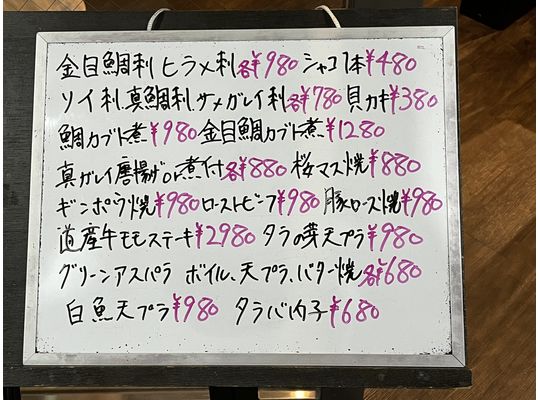 金目鯛刺 ヒラメ刺 各¥980 シャコ1本¥480
ソイ刺.真鯛刺.サメガレイ刺各¥780 貝カキ¥380
鯛カブト煮¥980 金目鯛カブト煮¥1280
真ガレイ唐揚げor煮付各¥880 桜マス焼¥880
ギンポウ焼¥980 ローストビーフ¥980 豚ロース焼¥980
道産牛モモステーキ¥2980 タラの芽天プラ¥980
グリーンアスパラ ボイル、天プラ、バター焼各¥680
白魚天プラ¥980 タラバ内子¥680